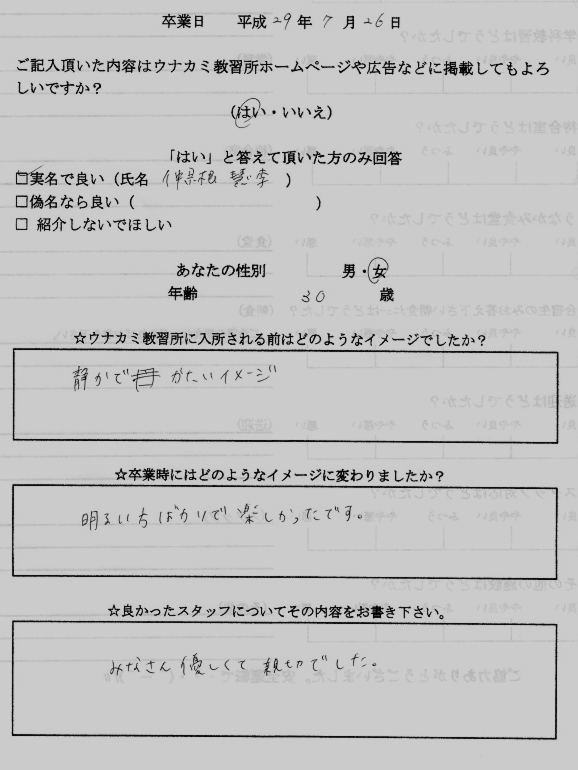 卒業日 平成 29 年 7 月 26 日
ご記入頂いた内容はウナカミ教習所ホームページや広告などに掲載してもよろ
しいですか？
（はい・いいえ）
「はい」と答えて頂いた方のみ回答
□実名で良い（氏名 仲 根 ）
□偽名なら良い（ ）
□ 紹介しないでほしい
あなたの性別 男・女
年齢 30 歳
☆ウナカミ教習所に入所される前はどのようなイメージでしたか？
静かで かたいイメージ
☆卒業時にはどのようなイメージに変わりましたか？
明るい方ばかりで楽しかったです。
☆良かったスタッフについてその内容をお書き下さい。
みなさん優しくて親切でした。